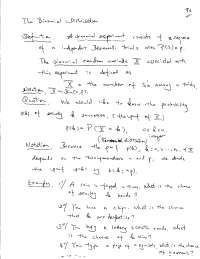 The Binomial Distribution
Definition A binomial experiment consists of a sequence
of n independent Bernoulli trials with P(S) = p.
The binomial random variable X associated with
this experiment is defined as
X = the number of S's among n trials.
Notation
Question We would like to know the probability
of k successes, (the pmf of X)
p(k) = P(X = k),
(binomial distribution)
Notation Because the pmf p(k), k = 0, 1, ..., n, of X
depends on the two parameters n and p, we denote
the pmf by b(k; n, p).
Examples. 1) A coin is tossed n times, what is the chance
of k heads?
2) You have n chips. what is the chance
that k are defective?
3) You buy n lottery tickets, what
is the chance of k
4) You type a page of n symbols, what is the chance
of k errors?